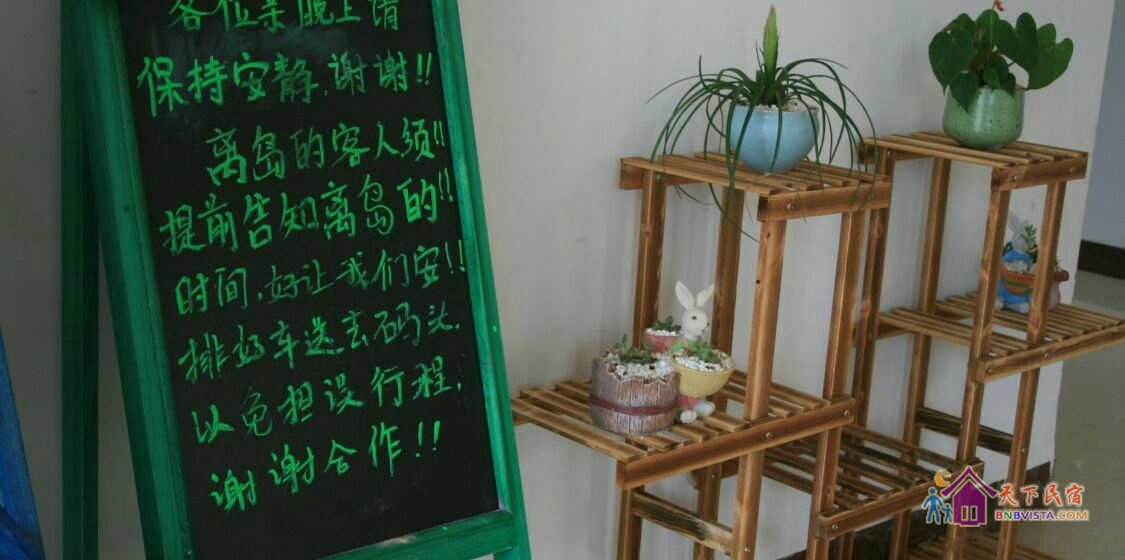 各位亲晚上请
保持安静.谢谢!!
离岛的客人须!!
提前告知离岛的!!
时间,好让我们安!!
排好车送去码头.
以免担误行程,
谢谢合作!!
天下民宿
BNBVISTA.COM